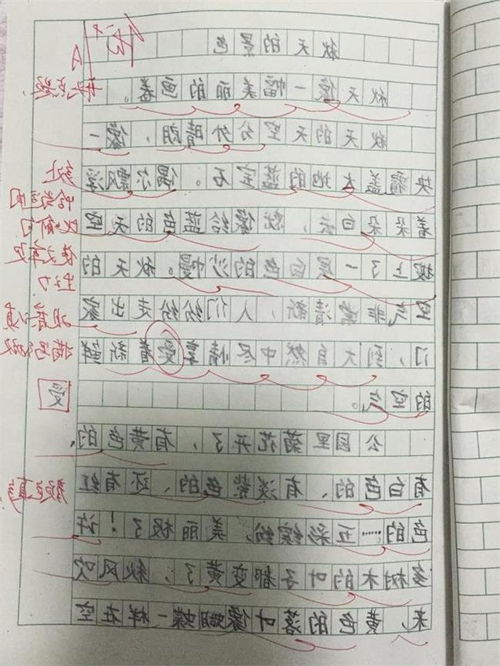 秋天的景色
秋天像一幅美丽的画卷。
秋天的天空分外晴朗，像一
块覆盖大地的蓝宝石。偶尔飘浮
着朵朵白云，就像给蓝色的天空
披上了一层白色的沙幔。秋天的
空气非常清新，人们纷纷走出家
门，到大自然中尽情享受着新鲜
的空气。
公园里菊花开了，有黄色的、
有白色的、有淡紫色的、还有红
色的……五彩缤纷，美丽极了！许
多树木的叶子都变黄了；秋风吹
来，黄色的落叶像蝴蝶一样在空
受